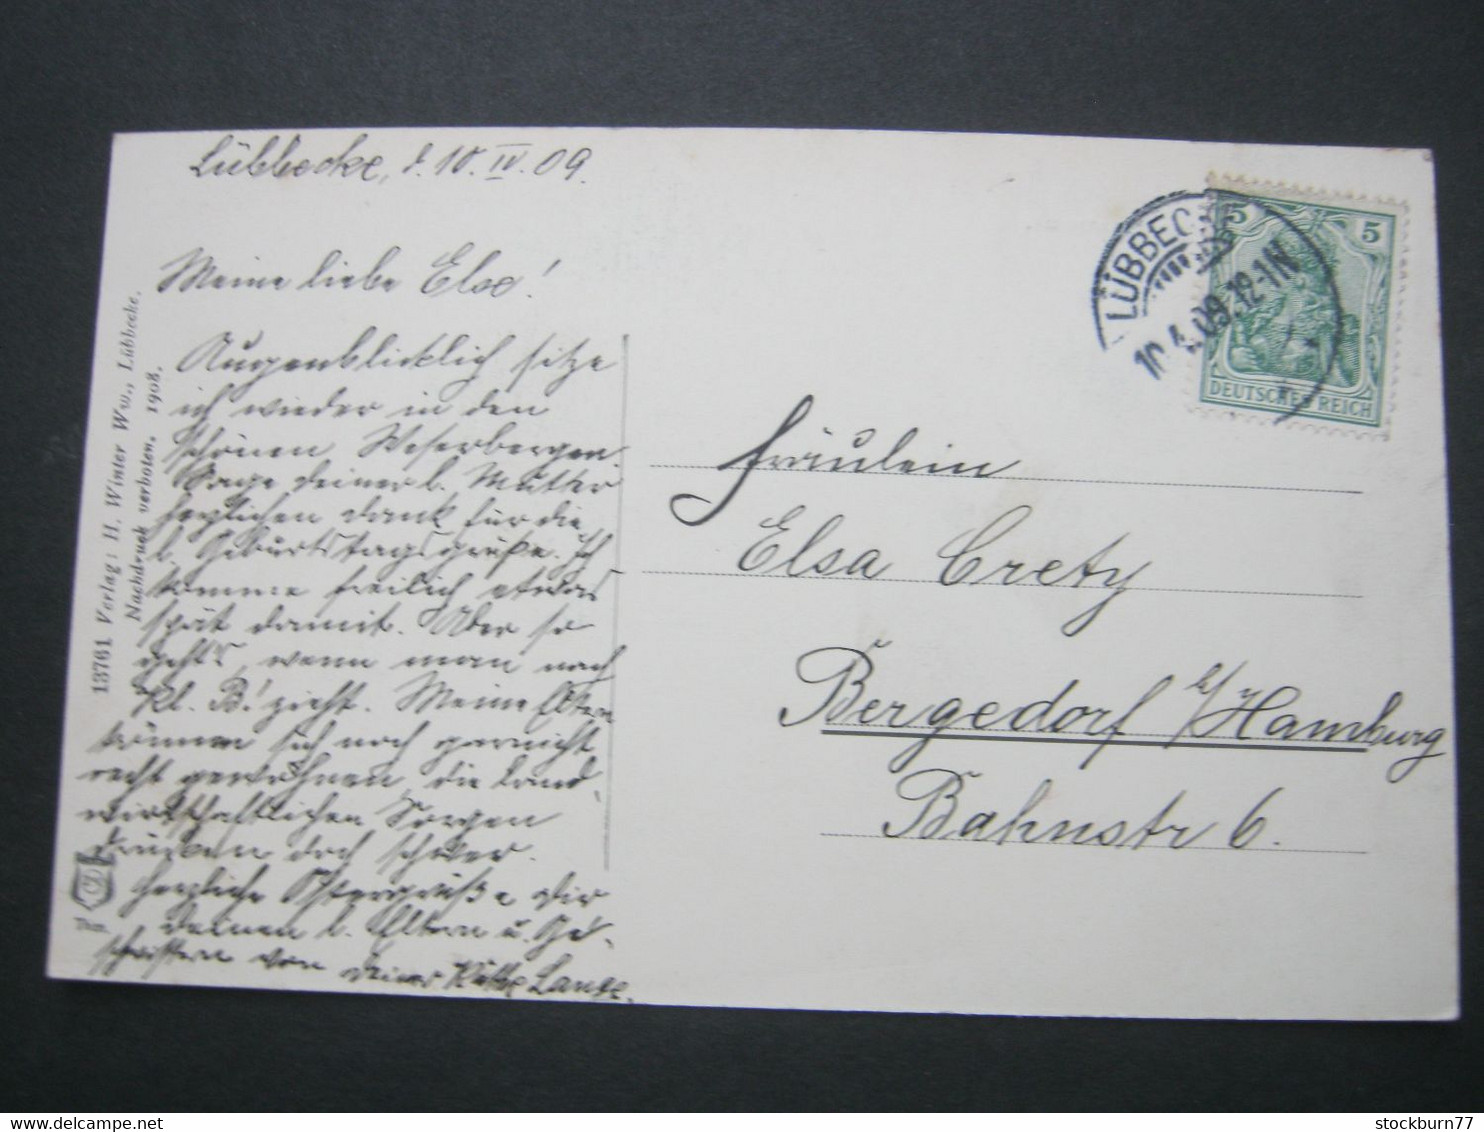 Lübbecke, d. 10. IV. 09.
Meine liebe Else!
Augenblicklich sitze
ich wieder in den
schönen Weserbergen.
Sage deiner l. Mutter
herzlichen Dank für die
l. Geburtstagsgrüße. Ich
komme freilich etwas
spät damit. Aber so
geht's, wenn man nach
Kl. B! zieht. Meine Eltern
können sich noch garnicht
recht gewöhnen, die land-
wirtschaftlichen Sorgen
drücken doch schwer.
Herzliche Ostergrüße Dir
Deinen l. Eltern u. Ge-
schwistern von Deiner Käthe Lange.
13761 Verlag: H. Winter Ww., Lübbecke.
Nachdruck verboten. 1908.
LÜBBECKE
10.4.09.12-1N
5 5
DEUTSCHES REICH
Fräulein
Elsa Crety
Bergedorf b/Hamburg
Bahnstr 6.
stockburn77